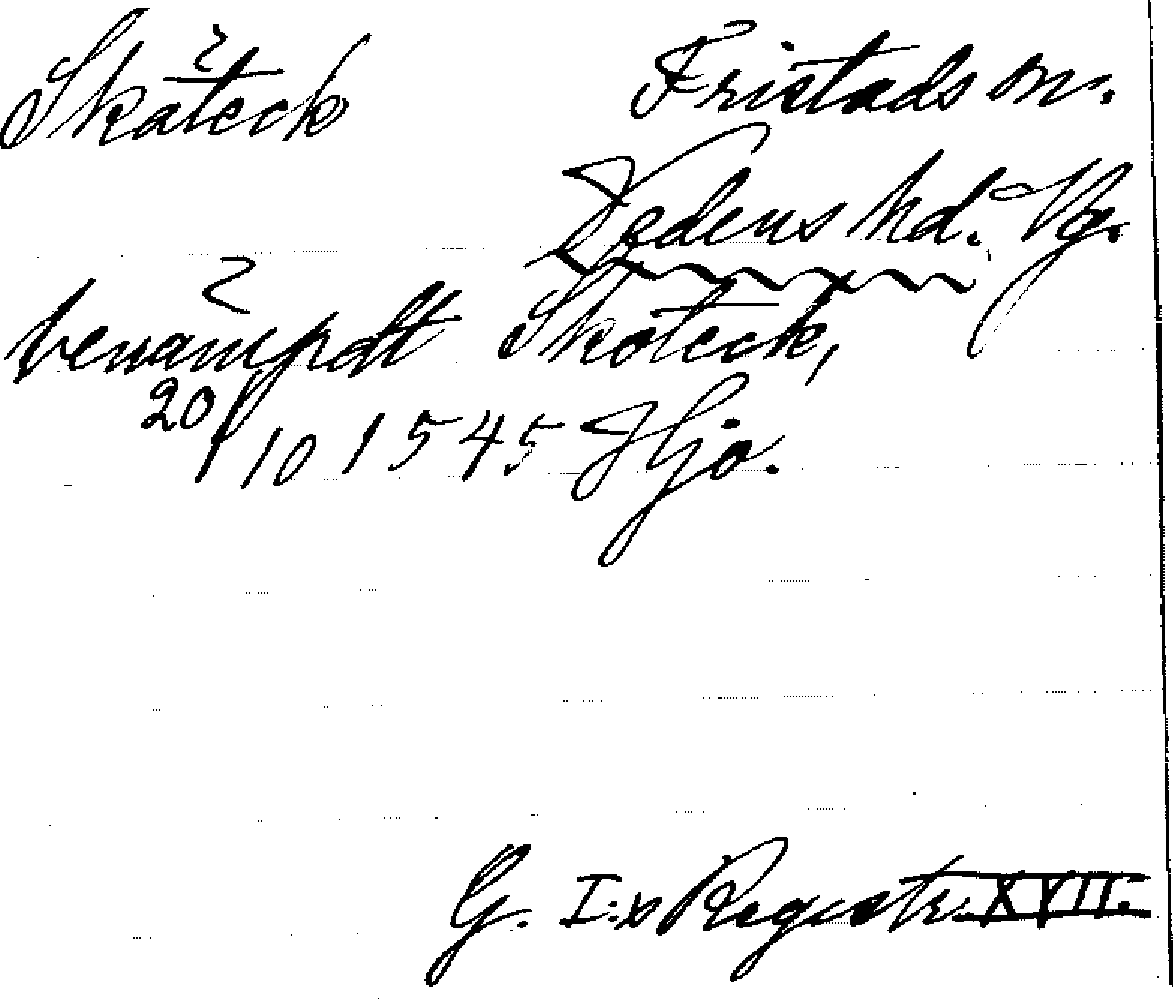 Skåteck Fristads sn.
Vedens hd. Vg.
benåmpdt Skoteck,
20/10 1545 Hjo.
G. I:s Registr. XVII.